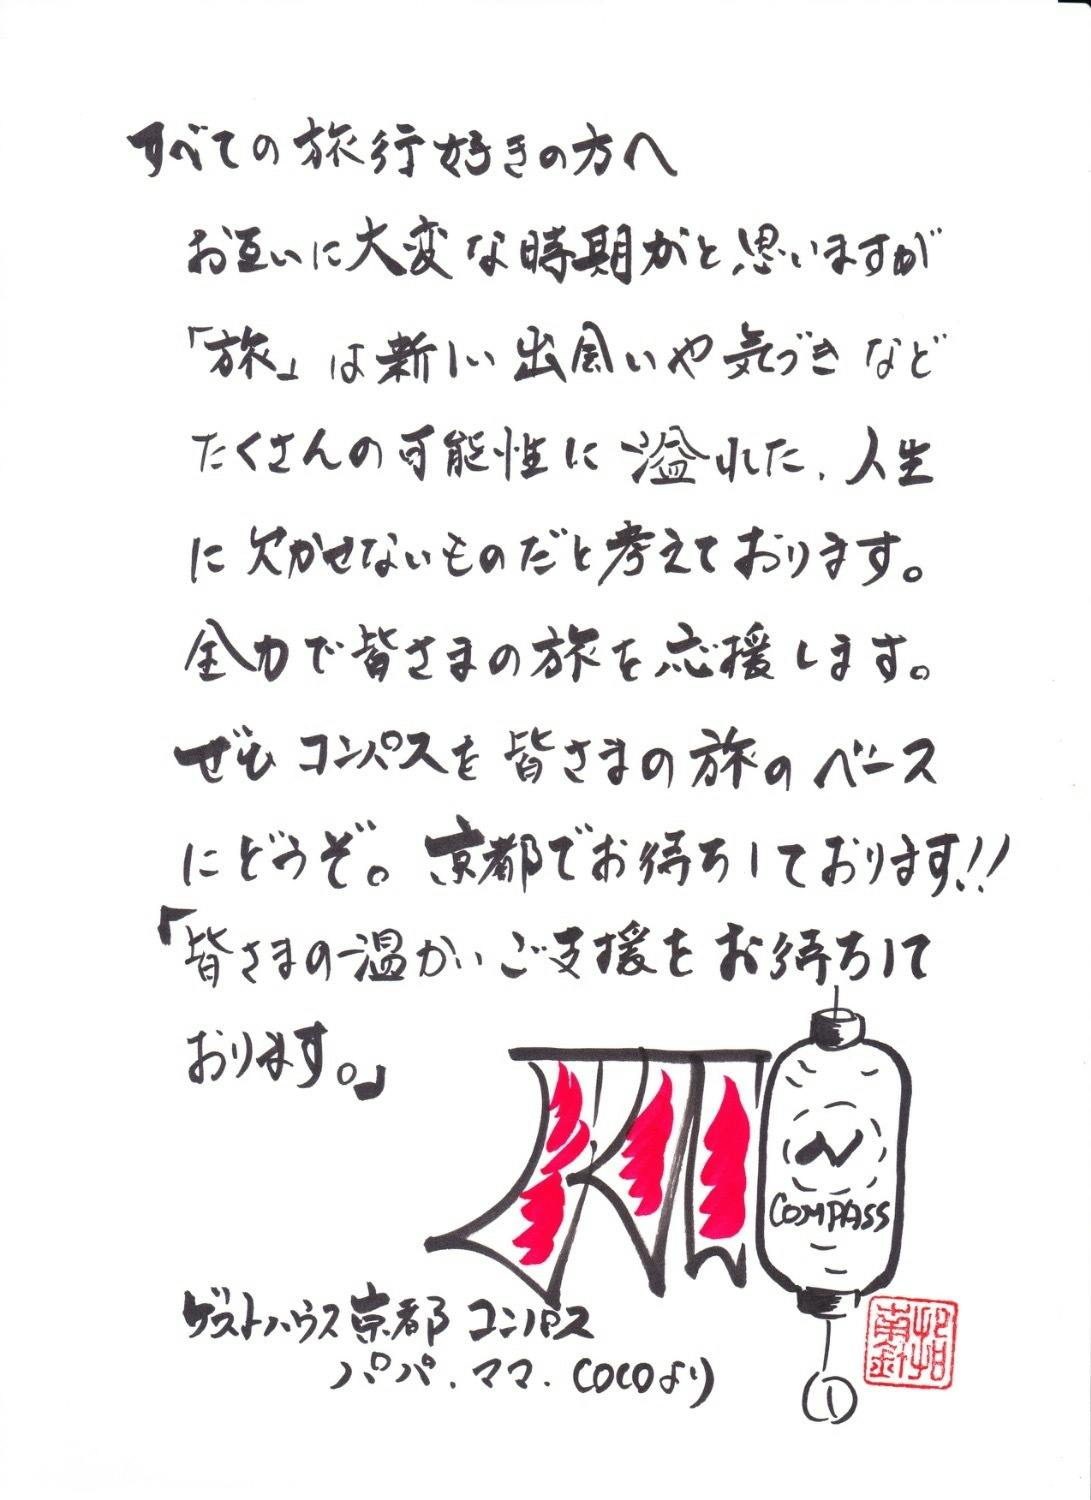 すべての旅行好きの方へ
お互いに大変な時期かと思いますが
「旅」は新しい出会いや気づきなど
たくさんの可能性に溢れた、人生
に欠かせないものだと考えております。
全力で皆さまの旅を応援します。
ぜひコンパスを皆さまの旅のベース
にどうぞ。京都でお待ちしております!!
「皆さまの温かいご支援をお待ちして
おります。」
N
COMPASS
ゲストハウス京都 コンパス
パパ、ママ、COCOより
指南針